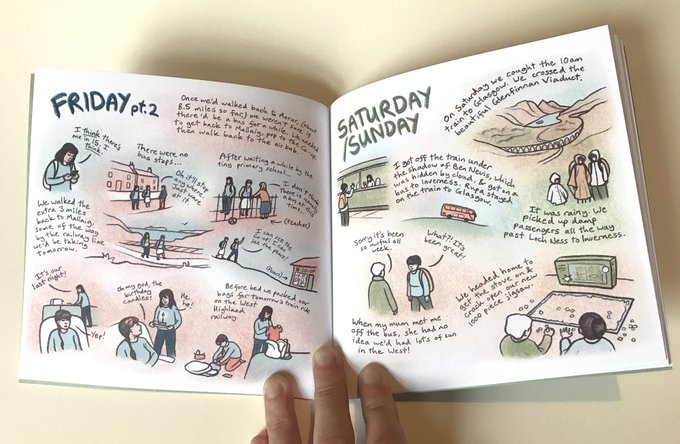 FRIDAY pt.2
Once we'd walked back to Morar, (about
8.5 miles so far) we weren't sure if
there'd be a bus for a while. We needed
to get back to Mallaig, pop to the Co-op,
then walk back to the airbnb.
I think there's
one in 15, more
Think.
There were no
bus stops...
Oh it'll stop
anywhere.
Just wave
at it.
After waiting a while by the
tiny primary school...
I don't think
there is
a bus at this
time...
(teacher)
We walked the
extra 3 miles
back to Mallaig,
some of the way
by the railway line
we'd be taking
tomorrow.
I can see the
see the place!
It's our
last night!
Yep!
Oh my god, the
birthday
candles!
He
he!
Before bed we packed our
bags for tomorrow's train ride
on the West
Highland
railway.
SATURDAY
/SUNDAY
On Saturday we caught the 10am
train to Glasgow. We crossed the
beautiful Glenfinnan Viaduct.
I got off the train under
the shadow of Ben Nevis, which
was hidden by cloud, & got a
bus to Inverness. Rupa stayed
on the train to Glasgow.
It was rainy. We
picked up damp
passengers all the way
past Loch Ness to Inverness.
Sorry it's been
so awful all
week.
What?! It's
been great!
When my mum met me
off the bus, she had no
idea we'd had lots of sun
in the West!
We headed home to
get the stove on &
crack open our new
1000 piece jigsaw.